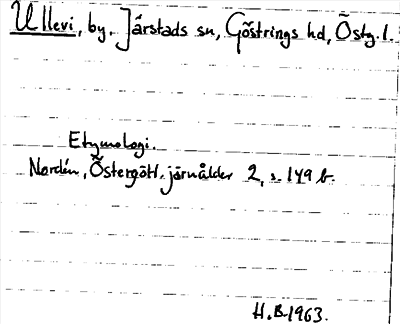 Ullevi, by. Järstads sn, Göstrings hd, Östg. l.
Etymologi.
Nordén, Östergötl. järnålder 2, s. 149 b.
H.B. 1963.